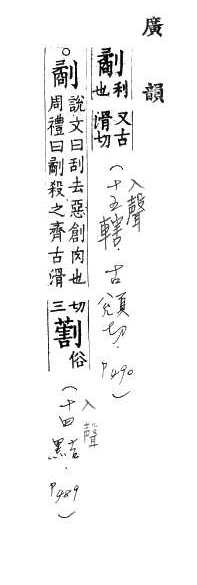 廣韻
劀利也又古滑切(入聲十五轄.古頒切.P490)
。劀說文曰刮去惡創肉也周禮曰劀殺之齊古滑切三 俗(入聲十四黠.P489)